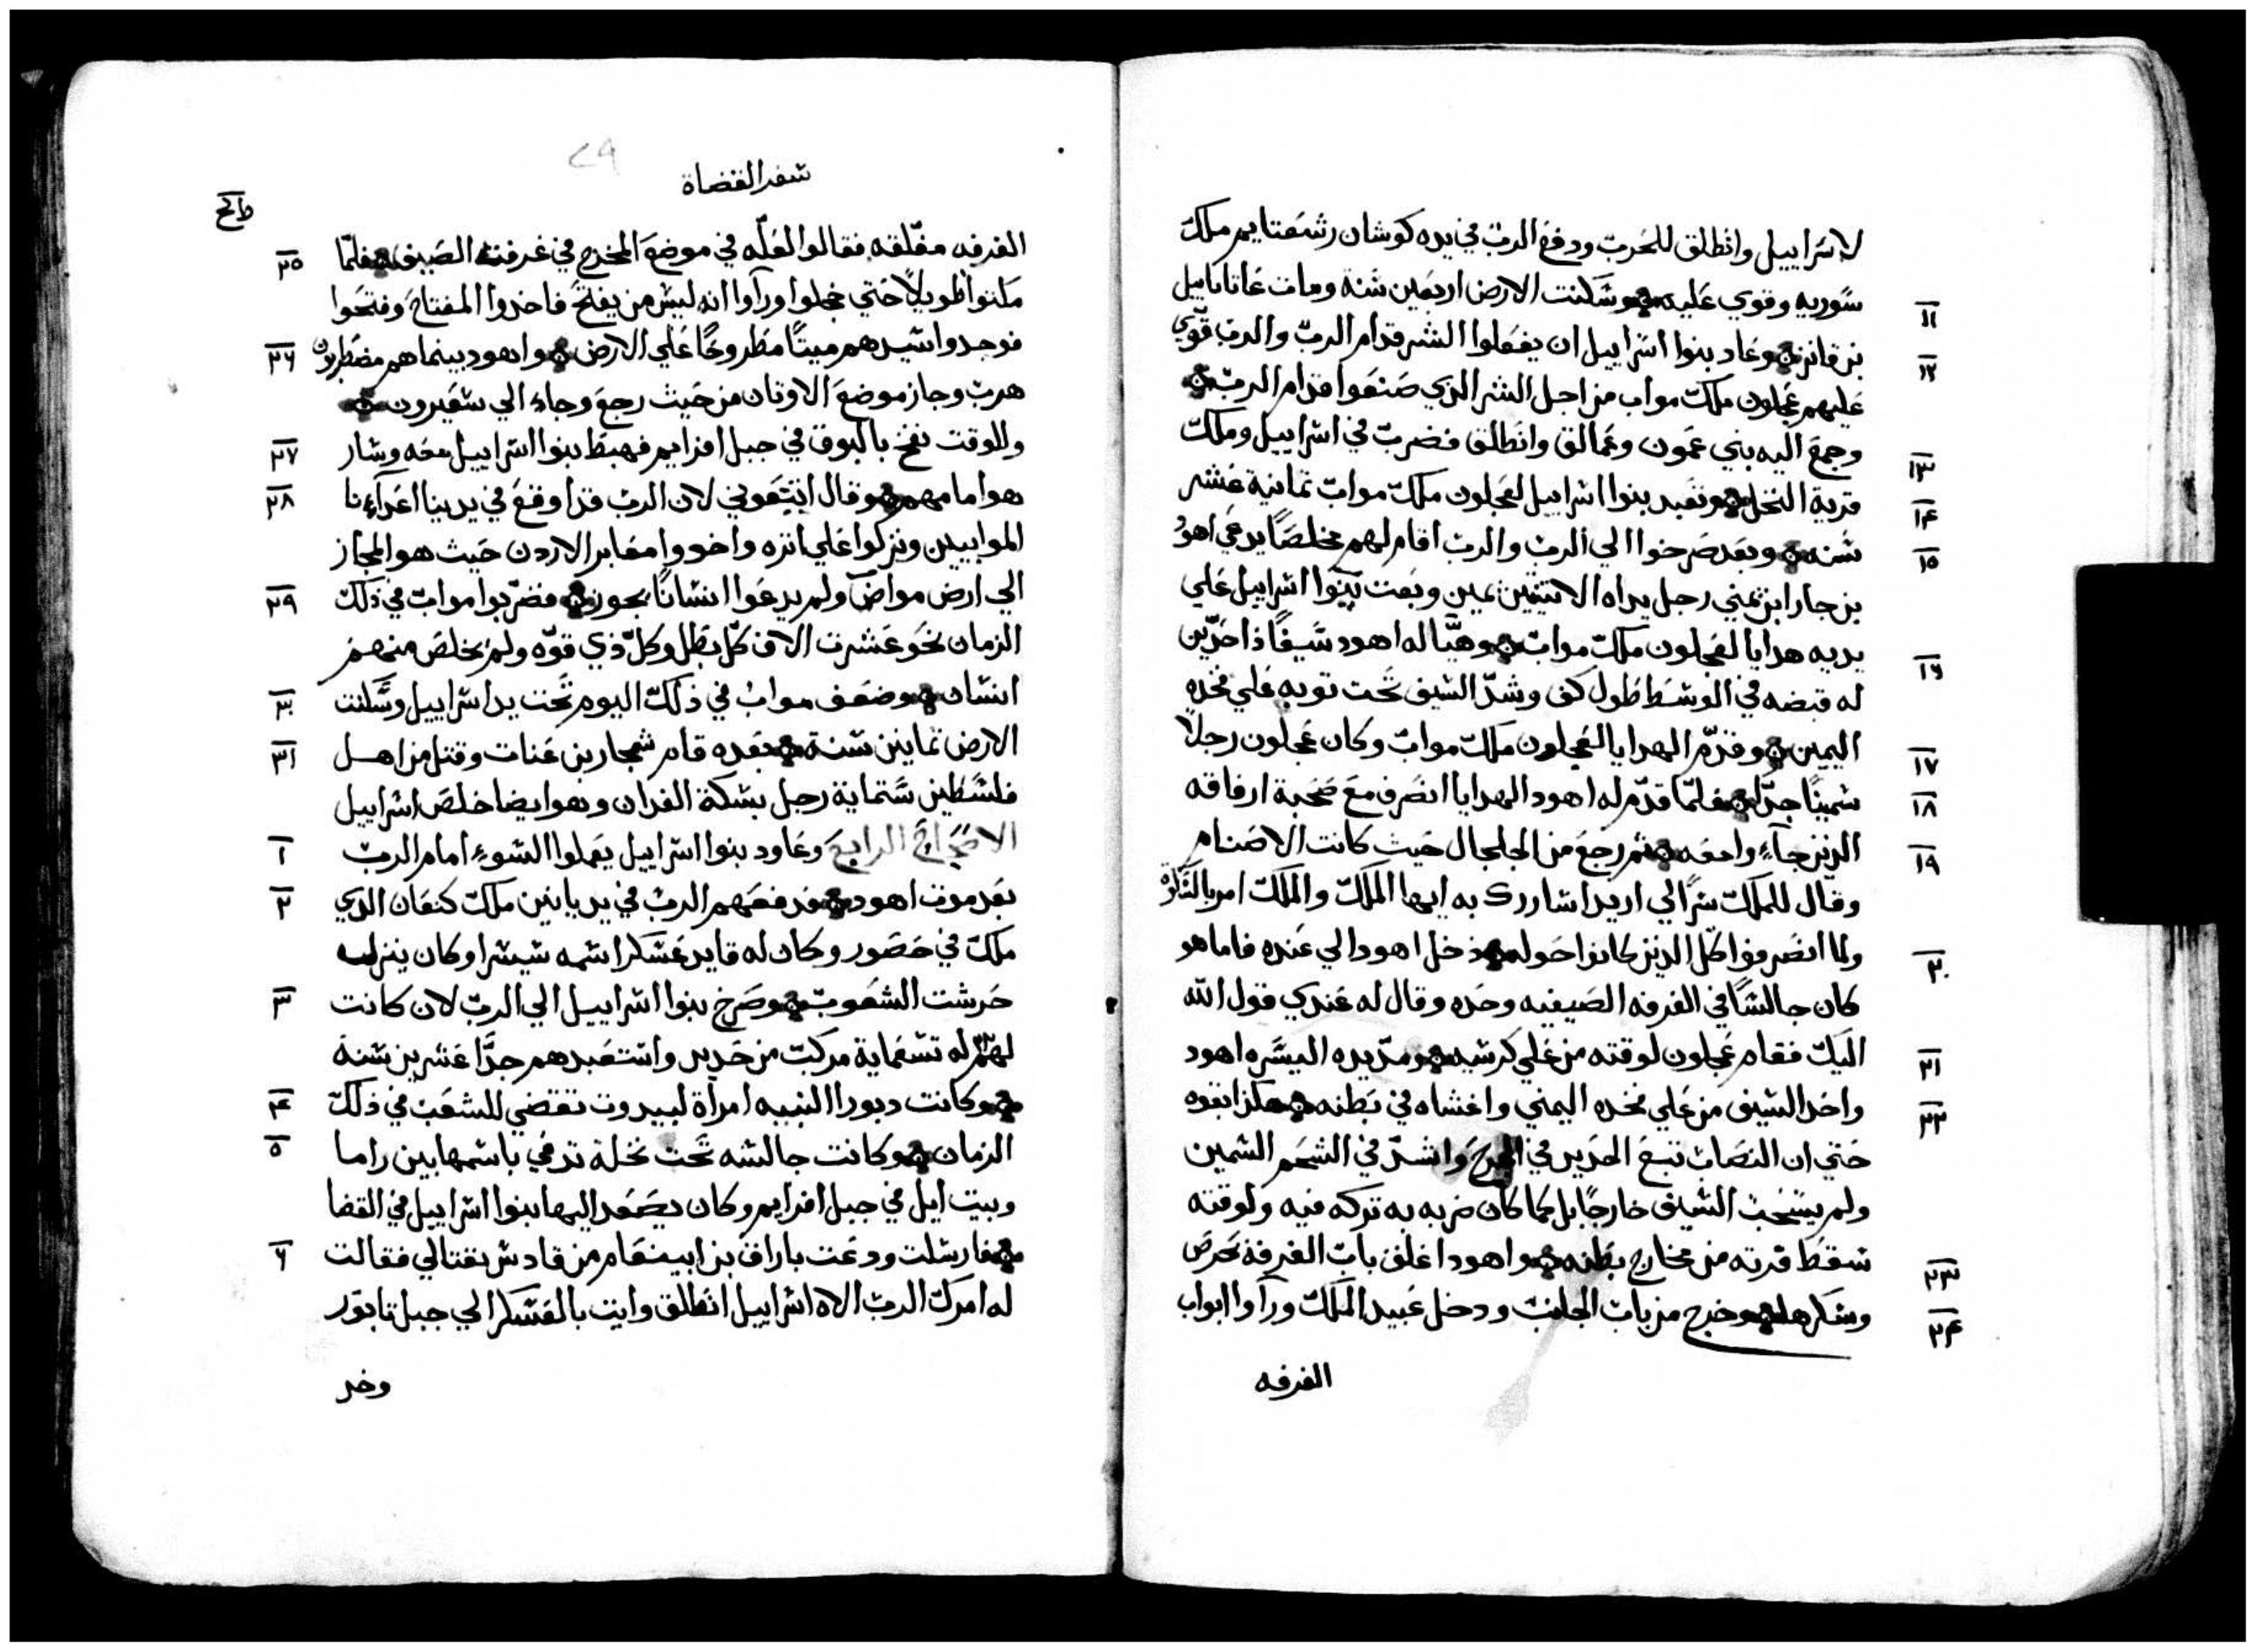 لاسراييل وانطلق للحرب ودفع الرب في يده كوشان رشعتايم ملك
١١ سوريه وقوي عليه وسكنت الارض اربعين سنة ومات عاتاناييل
١٢ بن قانز وعاد بنوا اسراييل ان يفعلوا الشر قدام الرب والرب قوي
عليهم عجلون ملك مواب من اجل الشر الذي صنعوا قدام الرب
١٣ وجمع اليه بني عمون وعمالق وانطلق فضرب في اسراييل وملك
١٤ قرية النخل وتعبد بنوا اسراييل لعجلون ملك مواب تمانية عشر
١٥ سنه وبعد صرخوا الي الرب والرب اقام لهم مخلصًا يدعي اهود
بن جارا ابن يمني رجل يداه الاتنتين يمين وبعت بنوا اسراييل علي
١٦ يديه هدايا لعجلون ملك مواب وهيا له اهود سيفًا ذا حدين
له قبضه في الوسط طول كف وشد السيف تحت توبه علي فخده
١٧ اليمين وقدم الهدايا لعجلون ملك مواب وكان عجلون رجلاً
١٨ سمينًا جدًا فلما قدم له اهود الهدايا انصرف مع صحبة ارفاقه
١٩ الدين جاءوا معه تم رجع من الجلجال حيث كانت الاصنام
وقال للملك سرًا لي اريد اشاررك به ايها الملك والملك امر بالسكوت
٢٠ ولما انصرفوا كل الدين كانوا حوله دخل اهود الي عنده فاما هو
كان جالسًا في الغرفه الصيفيه وحده وقال له عندي قول الله
٢١ اليك فقام عجلون لوقته من علي كرسيه ومد يده اليسره اهود
٢٢ واخد السيف من علي فخده اليمني واغشاه في بطنه هكذا بقوه
حتي ان النصاب تبع الحديد في الجرح واشتد في الشحم السمين
ولم يسحب السيف خارجًا بل كما كان ضربه به تركه فيه ولوقته
٢٣ سقط فرته من مخارج بطنه واهود اغلق باب الغرفة بحرص
٢٤ وسكرها وخرج من باب الجانب ودخل عبيد الملك ورآوا ابواب
الغرفه
سفر القضاة
٢٩
الغرفه مغلقه فقالوا لعله في موضع المخرج في غرفته الصيفيه فلما ٢٥
مكتوا طويلاً حتي خجلوا ورآوا انه ليس من يفتح فاخدوا المفتاح وفتحوا
فوجدوا سيدهم ميتًا مطروحًا علي الارض واهود بينما هم مضطربون ٢٦
هرب وجاز موضع الاوتان من حيث رجع وجاء الي سعيرون
وللوقت نفخ بالبوق في جبل افرايم فهبط بنوا اسراييل معه وسار ٢٧
هو امامهم وقال اتبعوني لان الرب قد اوقع في يدينا اعدآءنا ٢٨
الموابيين ونزلوا علي اتره واخدوا معابر الاردن حيث هو المجاز
الي ارض مواب ولم يدعوا انسانًا يجوز فضربوا مواب في ذلك ٢٩
الزمان نحو عشرت الاف كل بطل وكل ذي قوه ولم يخلص منهم
انسان وضعف مواب في ذلك اليوم تحت يد اسراييل وسكنت ٣٠
الارض تمانين سنة بعده قام شمجار بن عنات وقتل من اهل ٣١
فلسطين ستماية رجل بسكة الفدان وهو ايضا خلص اسراييل
الاصحاح الرابع وعاود بنوا اسراييل يعملوا السوء امام الرب ١
بعد موت اهود فدفعهم الرب في يد يابين ملك كنعان الدي ٢
ملك في حصور وكان له قايد عسكر اسمه سيسرا وكان ينزل
حرشت الشعوب وصرخ بنوا اسراييل الي الرب لان كانت ٣
له تسعماية مركب من حديد واستعبدهم جدًا عشرين سنة
وكانت دبورا النبيه امرأة لبيدوت تقضي للشعب في ذلك ٤
الزمان وكانت جالسه تحت نخلة تدعي باسمها بين راما ٥
وبيت ايل في جبل افرايم وكان يصعد اليها بنوا اسراييل في القضا
فارسلت ودعت باراق بن ابينعام من قادش نفتالي فقالت ٦
له امرك الرب الاه اسراييل انطلق وايت بالعسكر الي جبل تابور
وخد